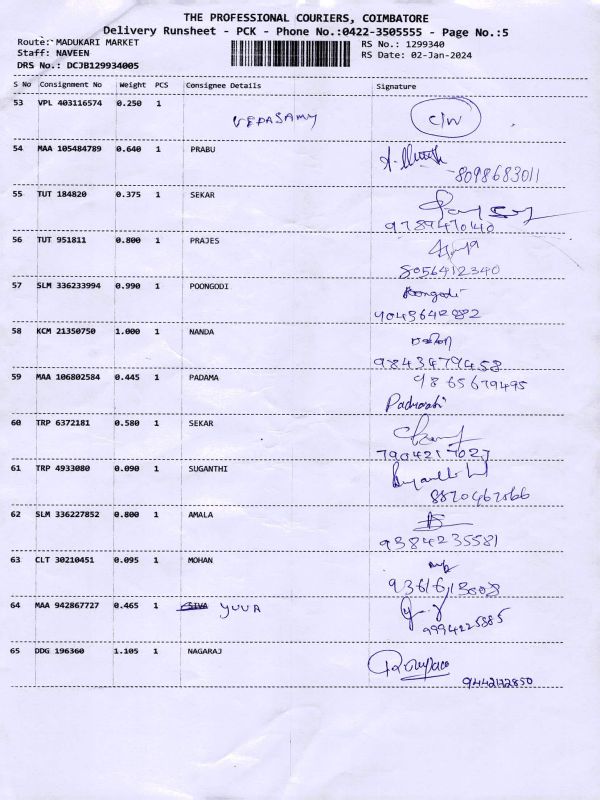 THE PROFESSIONAL COURIERS, COIMBATORE
Delivery Runsheet - PCK - Phone No.:0422-3505555 - Page No.:5
Route: MADUKARI MARKET RS No.: 1299340
Staff: NAVEEN RS Date: 02-Jan-2024
DRS No.: DCJB129934005
S No Consignment No Weight PCS Consignee Details Signature
53 VPL 403116574 0.250 1 VEDASAMY C/W
54 MAA 105484789 0.640 1 PRABU
8098683011
55 TUT 184820 0.375 1 SEKAR
978947040
56 TUT 951811 0.800 1 PRAJES
8056412340
57 SLM 336233994 0.990 1 POONGODI Poongodi
58 KCM 21350750 1.000 1 NANDA
9843479458
59 MAA 106802584 0.445 1 PADAMA 9865679495
60 TRP 6372181 0.580 1 SEKAR
7904217027
61 TRP 4933080 0.090 1 SUGANTHI
62 SLM 336227852 0.800 1 AMALA
9384235581
63 CLT 30210451 0.095 1 MOHAN
64 MAA 942867727 0.465 1 SIVA YUVA
9994225885
65 DDG 196360 1.105 1 NAGARAJ
9442142850